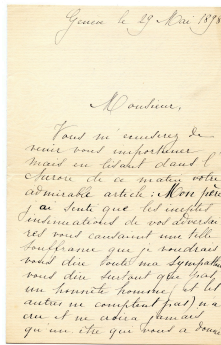 Genève le 29 Mai 1898
Monsieur,
Vous m'excuserez de
venir vous importuner
mais en lisant dans l'
Aurore de ce matin votre
admirable article: Mon père
j'ai senti que les ineptes
insinuations de vos adversai
res vous causaient une telle
souffrance que je voudrais
vous dire toute ma sympathie
vous dire surtout que pas
un honnête homme, et les
autres ne comptent pas) n'a
cru et ne croira jamais
qu'un être qui vous a donné